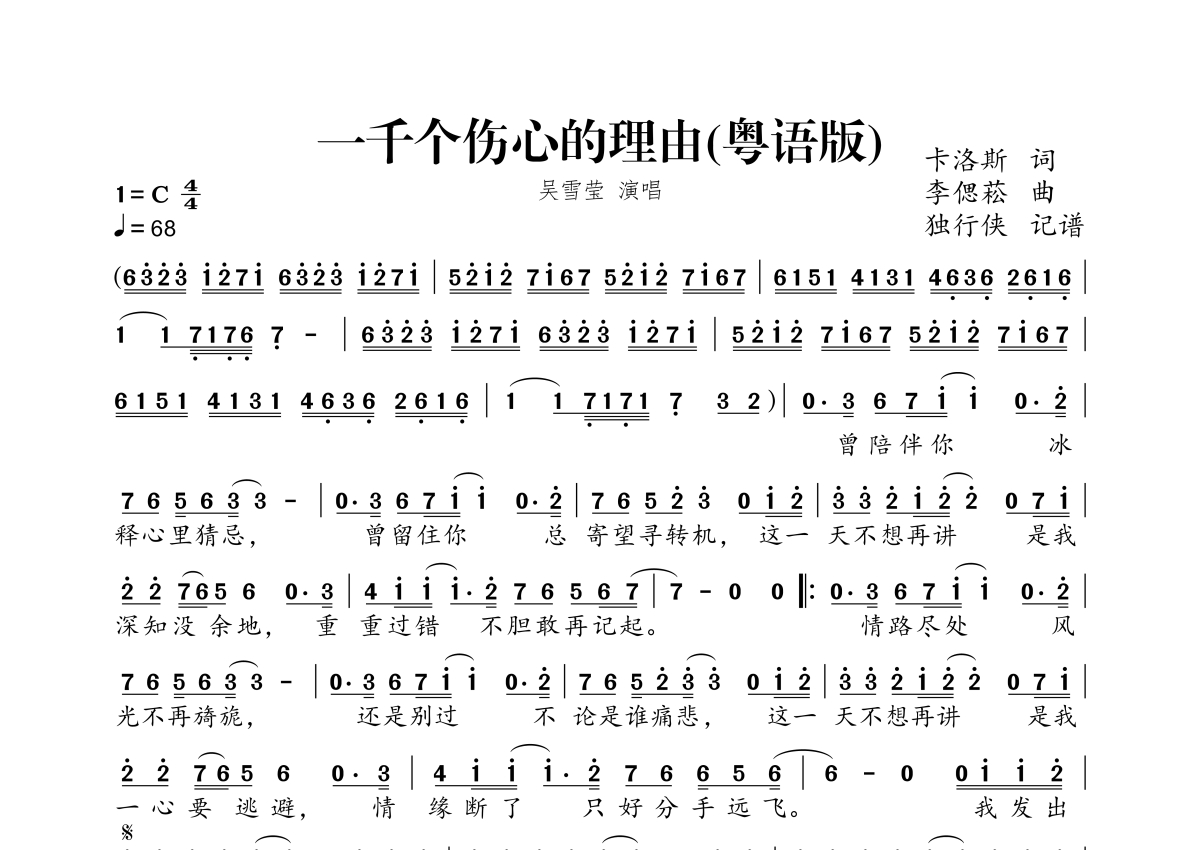 一千个伤心的理由(粤语版)
卡洛斯 词
1=C 4/4
吴雪莹 演唱
李偲菘 曲
♩=68
独行侠 记谱
(6323 1271 6323 1271 | 5212 7167 5212 7167 | 6151 4131 4636 2616 |
1 1 7176 7 - | 6323 1271 6323 1271 | 5212 7167 5212 7167 |
6151 4131 4636 2616 | 1 1 7171 7 32) | 0·3 671 1 0·2 |
曾陪伴你 冰
76 563 3 - | 0·3 671 1 0·2 | 7652 3 012 | 33212 2 071 |
释心里猜忌， 曾留住你 总 寄望寻转机，这一 天不想再讲 是我
22 765 6 0·3 | 411 1·2 76567 | 7 - 0 0 |: 0·3 671 1 0·2 |
深知没 余地， 重 重过错 不胆敢再记起。 情路尽处 风
76 563 3 - | 0·3 671 1 0·2 | 7652 3 3 012 | 33212 2 071 |
光不再旖旎， 还是别过 不 论是谁痛悲， 这一 天不想再讲 是我
22 765 6 0·3 | 411 1·2 76656 | 6 - 0 0112 |
一心要 逃避， 情 缘断了 只好分手远飞。 我发出
𝄋